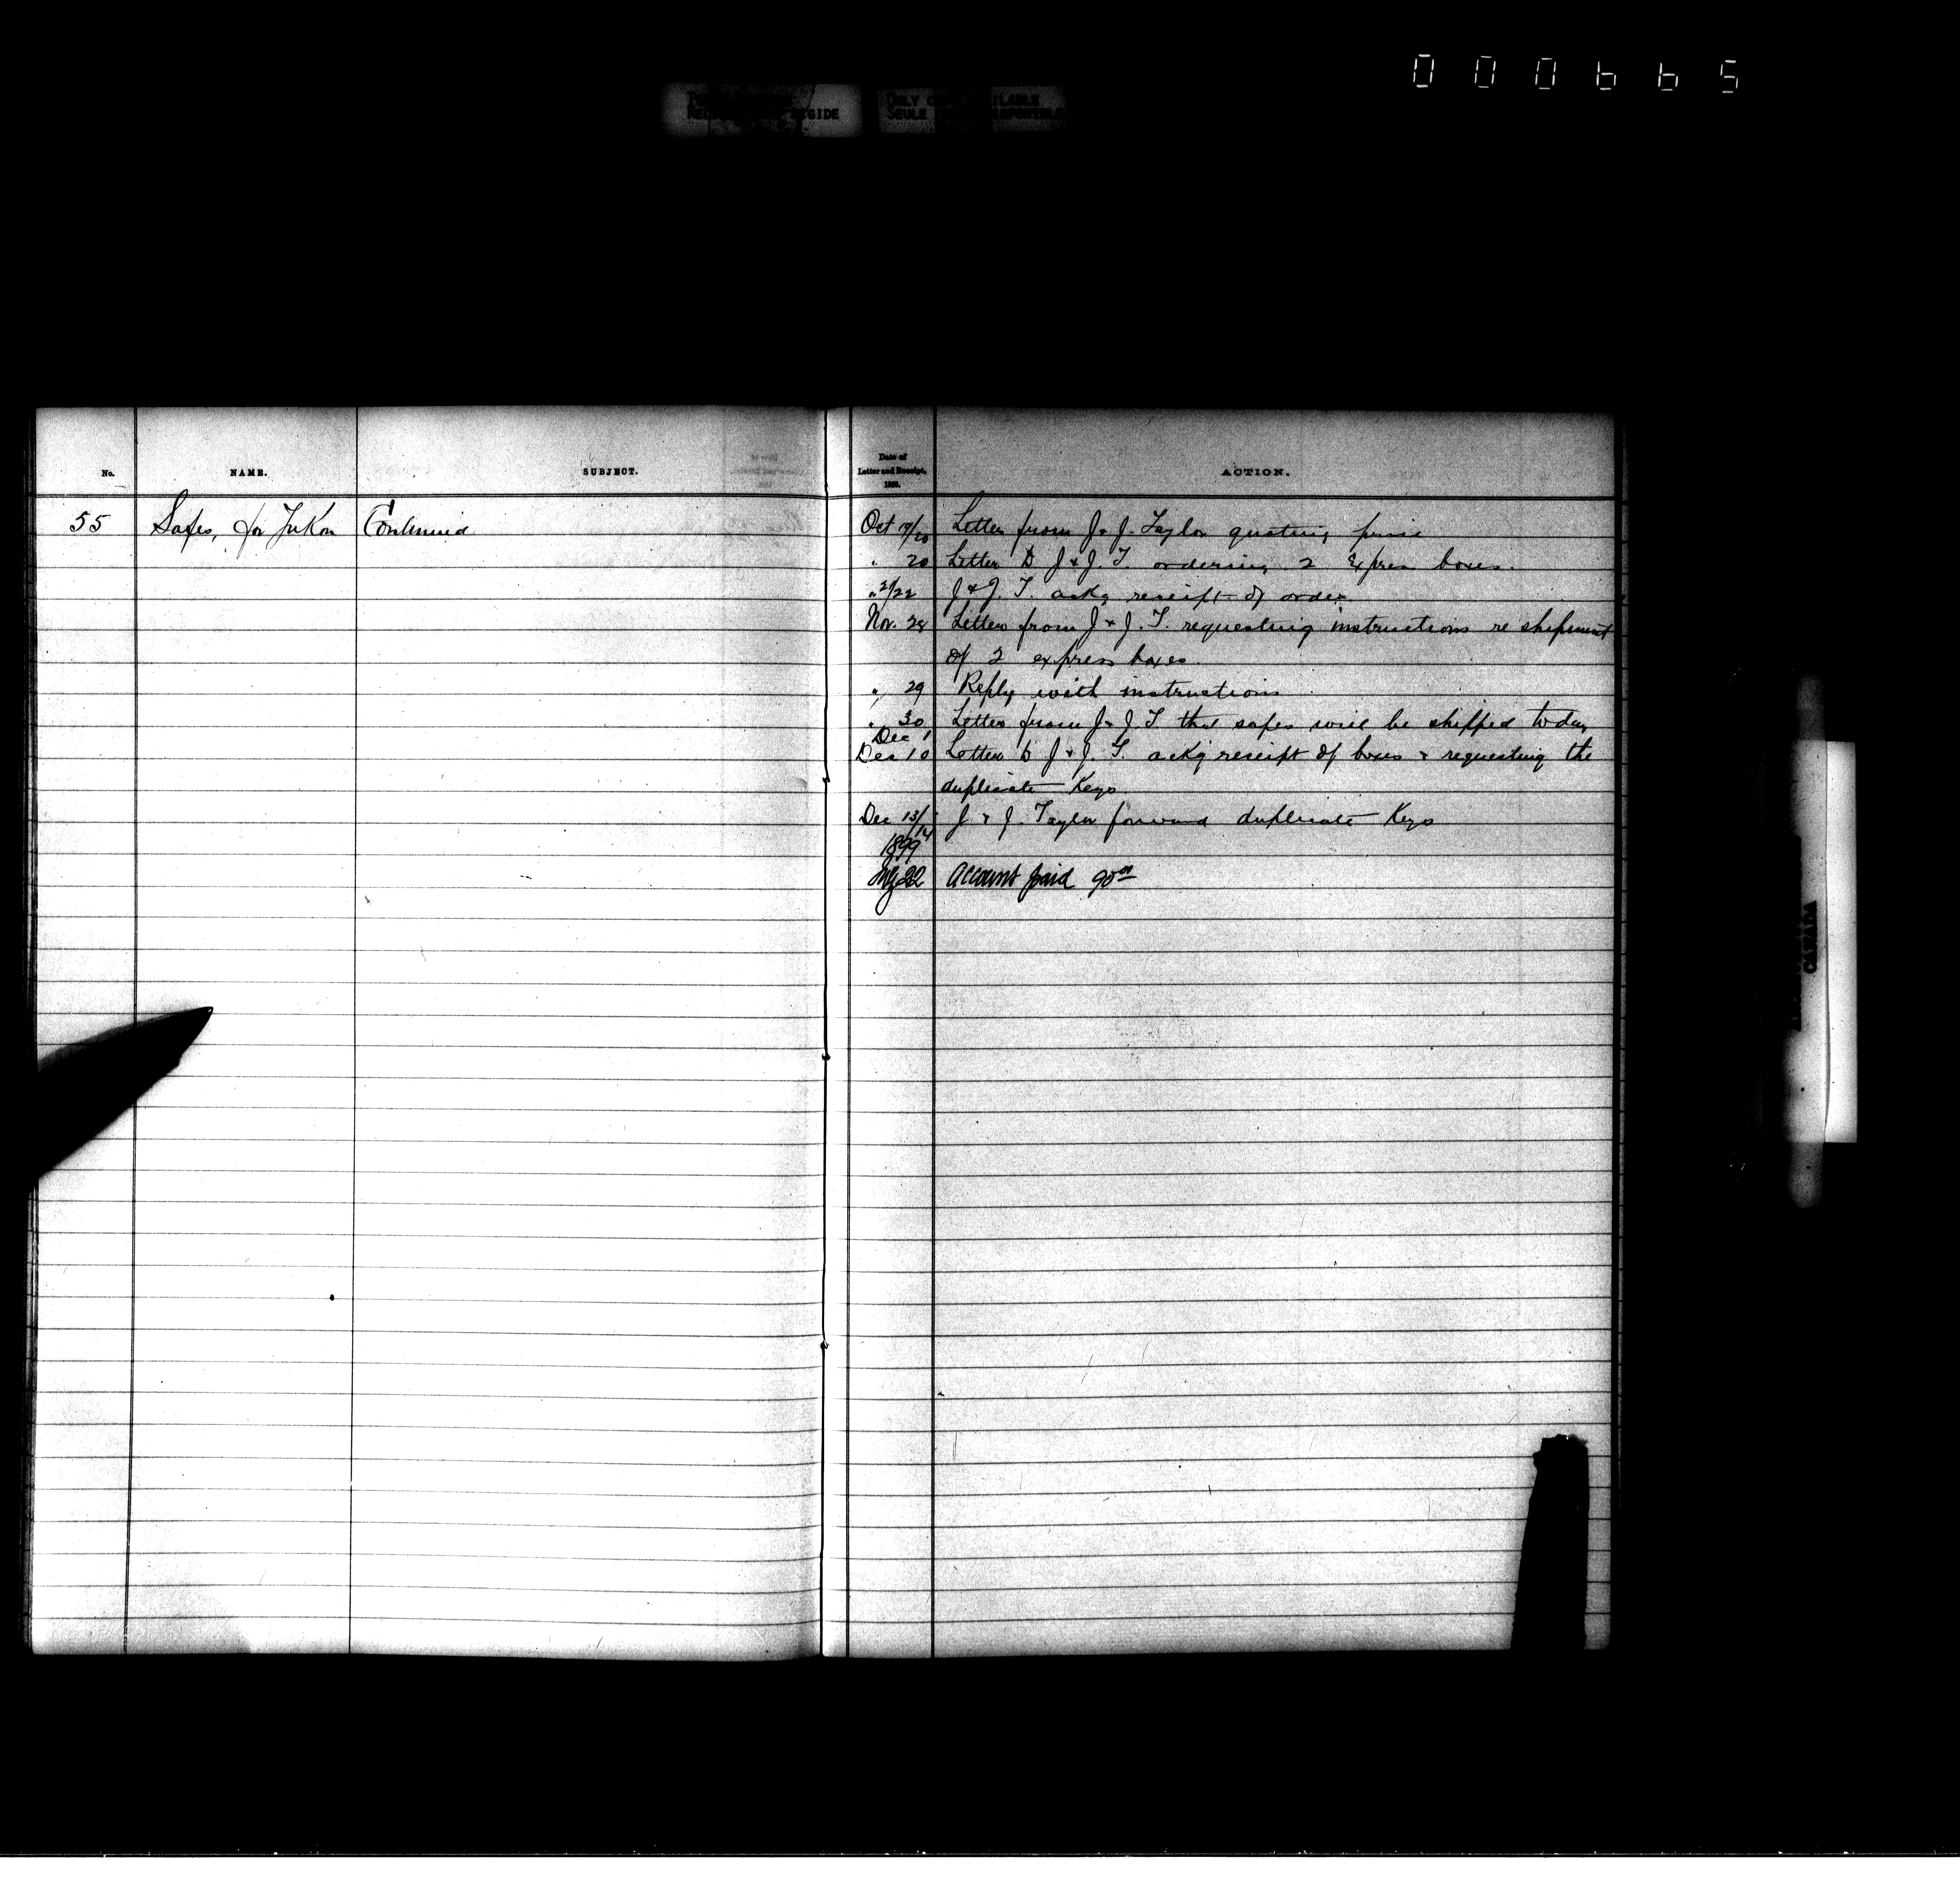 000665
ONLY
SEULE
No.
NAME.
SUBJECT.
Date of
Letter and Receipt,
189 .
ACTION.
55 Safes, for Yukon Continued Oct 19/20 Letter from J. & J. Taylor quoting price
" 20 Letter to J & J. T. ordering 2 Express boxes.
" 21/22 J & J. T. ackg receipt of order
Nov. 28 Letter from J & J. T. requesting instructions re shipment
of 2 express boxes.
" 29 Reply with instructions
" 30 Letter from J & J. T that safes will be shipped today
Dec 1
Dec 10 Letter to J & J. T. ackg receipt of boxes & requesting the
duplicate Keys
Dec 13/14 J & J. Taylor forward duplicate Keys
1899
22 Account paid 90 00
CANADA